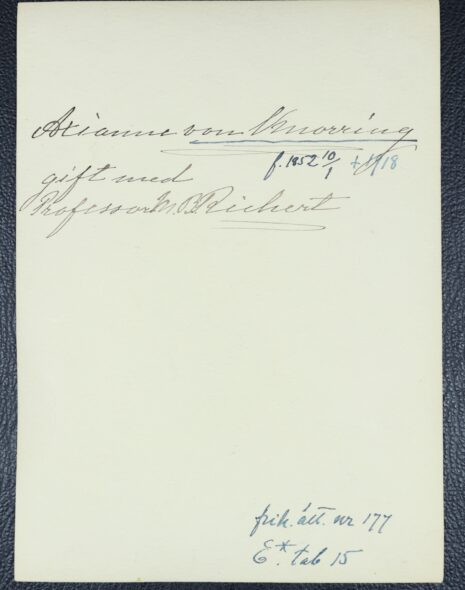 Axianne von Knorring
f. 1852 10/1 † 1918
gift med
Professor M. B. Richert
frih. ätt. nr 177
E*. tab 15